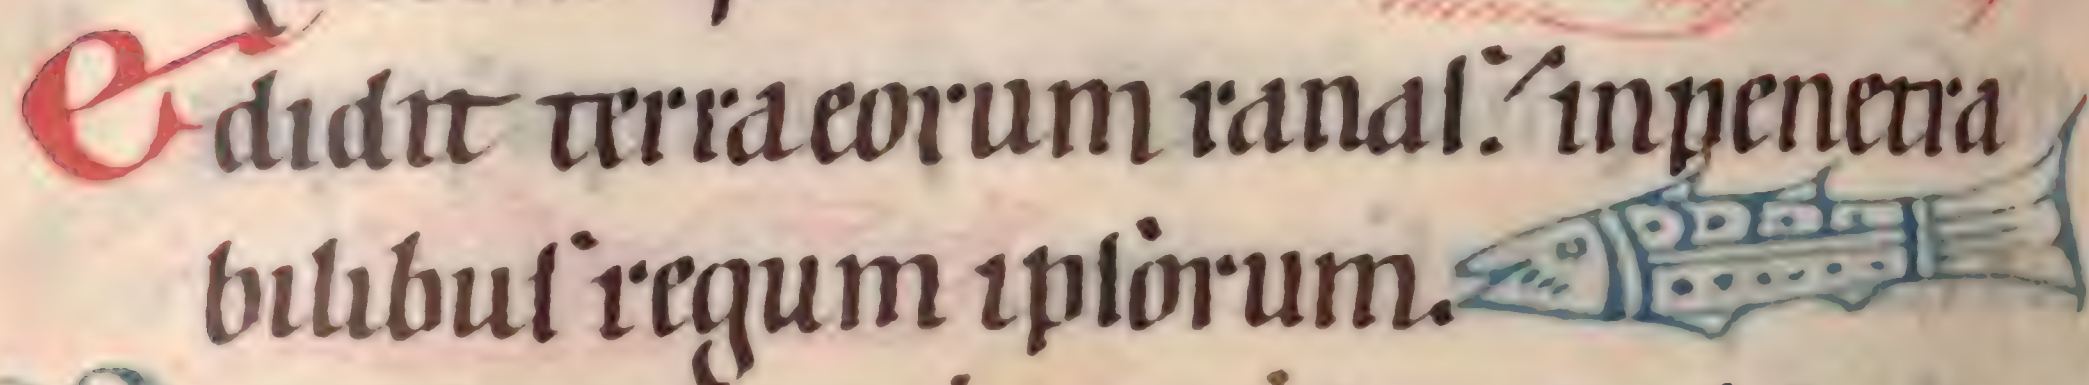 Edidit terra eorum ranas: inpenetra
bilibus regum ipsorum.